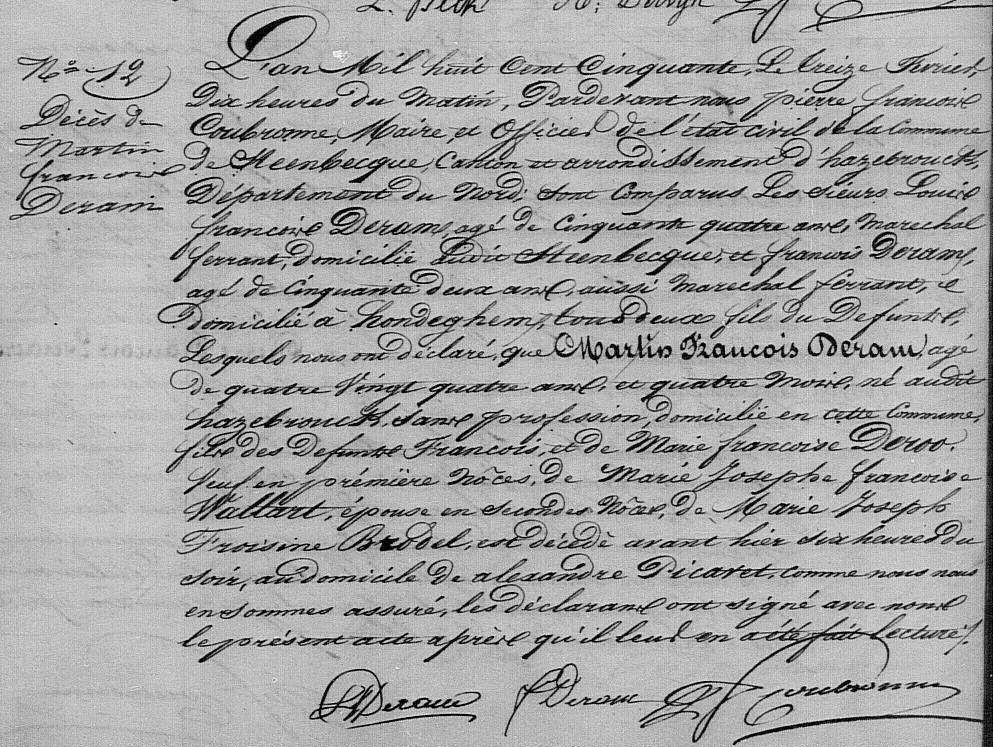 Nº 12
Décès de
Martin
francois
Deram
L'an Mil huit Cent Cinquante, Le treize Fevrier,
Dix heures du Matin, Pardevant nous pierre francois
Coubronne, Maire et Officier de l'état civil de la Commune
de Steenbecque, Canton et arrondissement d'hazebrouck,
Département du Nord, sont Comparus Les sieurs Louis
francois Derams, agé de Cinquante quatre ans, Marechal
ferrant, domicilié audit Steenbecque, et francois Derams,
agé de Cinquante deux ans, aussi Marechal ferrant,
domicilié à hondeghem, tous deux fils du Defunt,
Lesquels nous ont déclaré, que Martin Francois Deram, agé
de quatre Vingt quatre ans, et quatre Mois, né audit
hazebrouck, sans profession, domicilié en cette Commune,
fils des Defunts Francois, et de Marie francoise Deroo.
Veuf en prémière Nôces, de Marie Josephe francoise
Wallart, épouse en secondes Nôces, de Marie Joseph
Froisine Brodel, est décédé avant hier six heures du
soir, au domicile de alexandre Picavet, comme nous nous
en sommes assuré, les déclarans ont signé avec nous
le présent acte après qu'il leur en a été fait Lecture.
Deram F Deram Coubronne